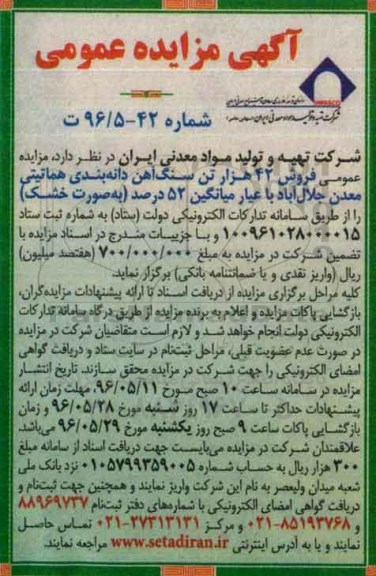 آگهی مزایده عمومی
شرکت تهیه و تولید مواد معدنی ایران
شماره ۴۲-۹۶/۵ ت
شرکت تهیه و تولید مواد معدنی ایران در نظر دارد، مزایده
عمومی فروش ۴۲ هزار تن سنگ‌آهن دانه‌بندی هماتیتی
معدن جلال‌آباد با عیار میانگین ۵۲ درصد (به‌صورت خشک)
را از طریق سامانه تدارکات الکترونیکی دولت (ستاد) به شماره ثبت ستاد
۱۰۰۹۶۱۰۲۸۰۰۰۰۱۵ و با جزییات مندرج در اسناد مزایده با
تضمین شرکت در مزایده به مبلغ ۷۰۰/۰۰۰/۰۰۰ (هفتصد میلیون)
ریال (واریز نقدی و یا ضمانتنامه بانکی) برگزار نماید.
کلیه مراحل برگزاری مزایده از دریافت اسناد تا ارائه پیشنهادات مزایده‌گران،
بازگشایی پاکات مزایده و اعلام به برنده مزایده از طریق درگاه سامانه تدارکات
الکترونیکی دولت انجام خواهد شد و لازم است متقاضیان شرکت در مزایده
در صورت عدم عضویت قبلی، مراحل ثبت‌نام در سایت ستاد و دریافت گواهی
امضای الکترونیکی را جهت شرکت در مزایده محقق سازند. تاریخ انتشار
مزایده در سامانه ساعت ۱۰ صبح مورخ ۹۶/۰۵/۱۱، مهلت زمان ارائه
پیشنهادات حداکثر تا ساعت ۱۷ روز شنبه مورخ ۹۶/۰۵/۲۸ و زمان
بازگشایی پاکات ساعت ۹ صبح روز یکشنبه مورخ ۹۶/۰۵/۲۹ می‌باشد.
علاقمندان شرکت در مزایده می‌بایست جهت دریافت اسناد از سامانه مبلغ
۳۰۰ هزار ریال به حساب شماره ۰۱۰۵۷۹۹۳۵۹۰۰۵ نزد بانک ملی
شعبه میدان ولیعصر به نام این شرکت واریز نمایند و همچنین جهت ثبت‌نام و
دریافت گواهی امضای الکترونیکی با شماره‌های دفتر ثبت‌نام ۸۸۹۶۹۷۳۷
و ۸۵۱۹۳۷۶۸-۰۲۱ و مرکز ۲۷۳۱۳۱۳۱-۰۲۱ تماس حاصل
نمایند و یا به آدرس اینترنتی www.setadiran.ir مراجعه نمایند.